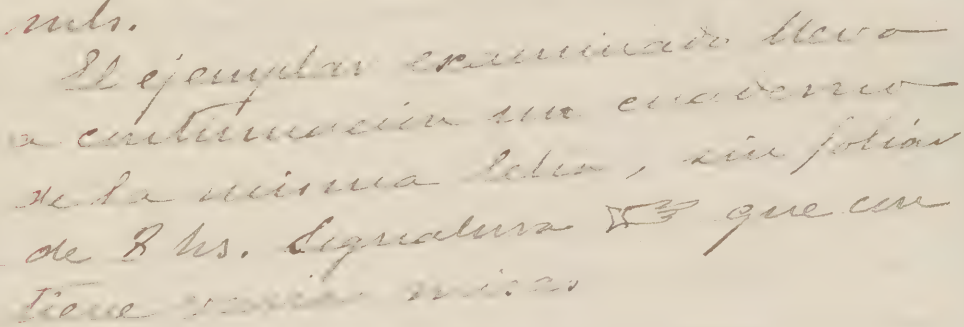 El ejemplar examinado lleva
a continuación un cuaderno
de la misma letra, sin foliar
de 8 hs. Signatura ☞ que con
tiene varias misas